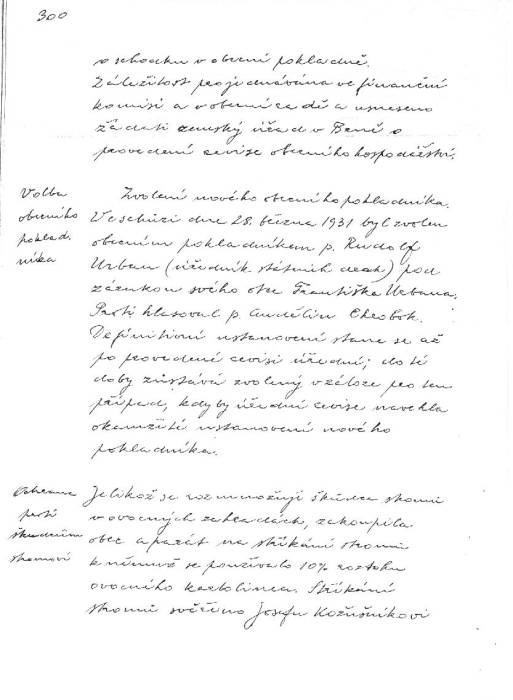 300
o schodku v obecní pokladně.
Záležitost projednávána ve finanční
komisi a v obecní radě a usneseno
žádati zemský úřad v Brně o
provedení revise obecního hospodářství.
Volba
obecního
poklad.
níka
Zvolení nového obecního pokladníka.
Ve schůzi dne 28. března 1931 byl zvolen
obecním pokladníkem p. Rudolf
Urban (úředník státních drah) pod
zárukou svého otce Františka Urbana.
Proti hlasoval p. Andělín Chrobok.
Definitivní ustanovení stane se až
po provedené revisi úřední; do té
doby zůstává zvolený v záloze pro ten
případ, kdyby úřední revise navrhla
okamžité ustanovení nového
pokladníka.
Ochrana
proti
škůdcům
stromoví
Jelikož se rozmnožují škůdci stromů
v ovocných zahradách, zakoupila
obec aparát na stříkání stromů
k němuž se používalo 10% roztoku
ovocního karbolinea. Stříkání
stromů svěřeno Josefu Kožušníkovi